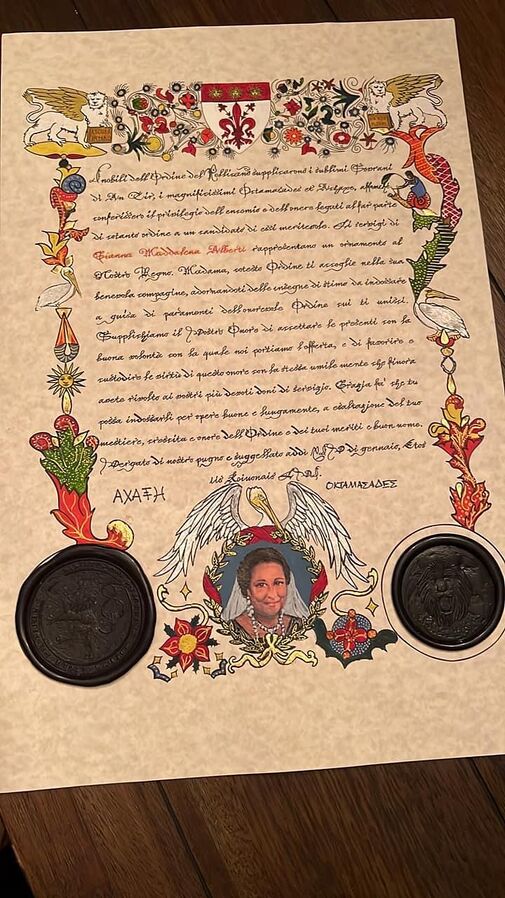 I nobili dell'Ordine del Pellicano supplicarono i sublimi Sovrani
di An Tir, i magnificissimi Octamasades ed affinché
conferissero il privilegio dell'encomio e dell'onere legati al far parte
di cotanto ordine a un candidato di essi meritevole. Li servigi di
Giovanna Maddalena Alberti rappresentano un ornamento al
Nostro Regno. Madama, cotesto Ordine ti accoglie nella sua
benevola compagine, adornandoti delle insegne di stima da indossare
a guisa di paramenti dell'onorevole Ordine cui ti unisci.
Supplichiamo il Vostro Onore di accettare le presenti con la
buona volontà con la quale noi portiamo l'offerta, e di favorire e
custodire le virtù di questo onore con la stessa umile mente che finora
avete rivolto ai vostri più devoti doni di servigio. Grazia fa' che tu
possa indossarli per opere buone e lungamente, a esaltazione del tuo
mestiere, crescita e onore dell'Ordine e dei tuoi meriti e buon nome.
Vergato di nostro pugno e suggellato addì di gennaio,
ΑΧΑΞΗ
ΟΚΤΑΜΑΣΑΔΕΣ